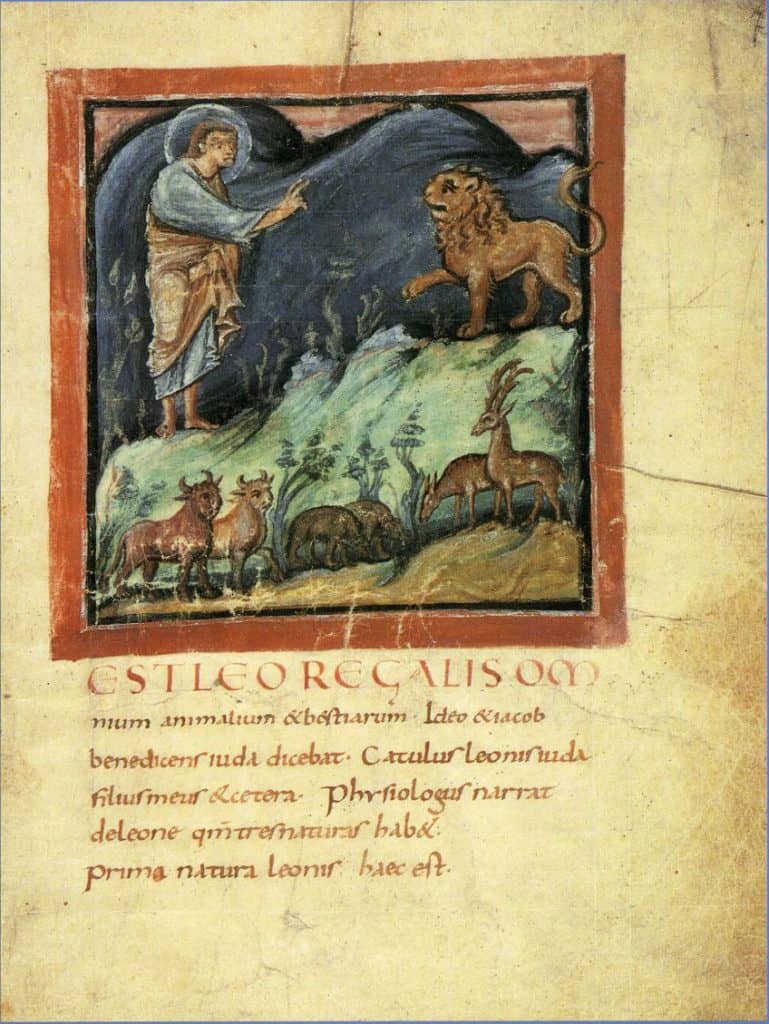 EST LEO REGALIS OM
nium animalium & bestiarum · Ideo & iacob
benedicens iuda dicebat · Catulus leonis iuda
filius meus & cetera · Phisiologus narrat
de leone qm̄ tres naturas hab&·
prima natura leonis haec est·